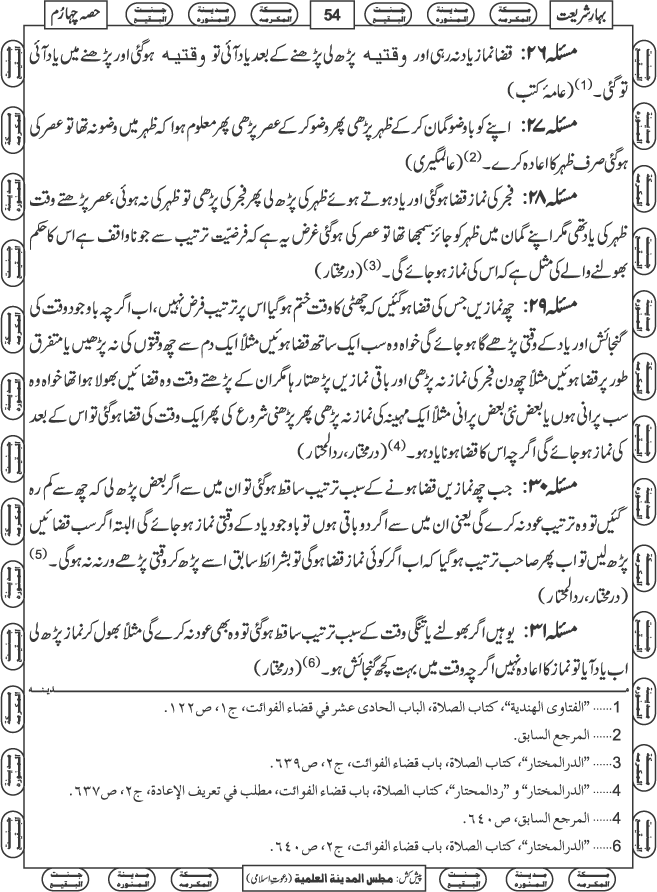 بہارِ شریعت
جنت البقیع
مدینۃ المنورہ
مکۃ المکرمہ
54
جنت البقیع
مدینۃ المنورہ
مکۃ المکرمہ
حصہ چہارم
مسئلہ ۲۶: قضا نماز یاد نہ رہی اور وقتیہ پڑھ لی پڑھنے کے بعد یاد آئی تو وقتیہ ہو گئی اور پڑھنے میں یاد آئی
تو گئی۔(1) (عامۂ کتب)
مسئلہ ۲۷: اپنے کو باوضو گمان کر کے ظہر پڑھی پھر وضو کر کے عصر پڑھی پھر معلوم ہوا کہ ظہر میں وضو نہ تھا تو عصر کی
ہو گئی صرف ظہر کا اعادہ کرے۔(2) (عالمگیری)
مسئلہ ۲۸: فجر کی نماز قضا ہو گئی اور یاد ہوتے ہوئے ظہر کی پڑھ لی پھر فجر کی پڑھی تو ظہر کی نہ ہوئی، عصر پڑھتے وقت
ظہر کی یاد تھی مگر اپنے گمان میں ظہر کو جائز سمجھا تھا تو عصر کی ہو گئی غرض یہ ہے کہ فرضیّت ترتیب سے جو ناواقف ہے اس کا حکم
بھولنے والے کی مثل ہے کہ اس کی نماز ہو جائے گی۔(3) (درمختار)
مسئلہ ۲۹: چھ نمازیں جس کی قضا ہو گئیں کہ چھٹی کا وقت ختم ہو گیا اس پر ترتیب فرض نہیں، اب اگرچہ باوجود وقت کی
گنجائش اور یاد کے وقتی پڑھے گا ہو جائے گی خواہ وہ سب ایک ساتھ قضا ہوئیں مثلاً ایک دم سے چھ وقتوں کی نہ پڑھیں یا متفرق
طور پر قضا ہوئیں مثلاً چھ دن فجر کی نماز نہ پڑھی اور باقی نمازیں پڑھتا رہا مگر ان کے پڑھتے وقت وہ قضائیں بھولا ہوا تھا خواہ وہ
سب پرانی ہوں یا بعض نئی بعض پرانی مثلاً ایک مہینہ کی نماز نہ پڑھی پھر پڑھنی شروع کی پھر ایک وقت کی قضا ہو گئی تو اس کے بعد
کی نماز ہو جائے گی اگرچہ اس کا قضا ہونا یاد ہو۔(4) (درمختار، ردالمحتار)
مسئلہ ۳۰: جب چھ نمازیں قضا ہونے کے سبب ترتیب ساقط ہو گئی تو ان میں سے اگر بعض پڑھ لی کہ چھ سے کم رہ
گئیں تو وہ ترتیب عود نہ کرے گی یعنی ان میں سے اگر دو باقی ہوں تو باوجود یاد کے وقتی نماز ہو جائے گی البتہ اگر سب قضائیں
پڑھ لیں تو اب پھر صاحب ترتیب ہو گیا کہ اب اگر کوئی نماز قضا ہو گی تو بشرائط سابق اسے پڑھ کر وقتی پڑھے ورنہ نہ ہو گی۔(5)
(درمختار، ردالمحتار)
مسئلہ ۳۱: یوہیں اگر بھولنے یا تنگی وقت کے سبب ترتیب ساقط ہو گئی تو وہ بھی عود نہ کرے گی مثلاً بھول کر نماز پڑھ لی
اب یاد آیا تو نماز کا اعادہ نہیں اگرچہ وقت میں بہت کچھ گنجائش ہو۔(6) (درمختار)
1...... ”الفتاوی الهندية“، كتاب الصلاة، الباب الحادی عشر في قضاء الفوائت، ج۱، ص۱۲۲.
2...... المرجع السابق.
3...... ”الدرالمختار“، كتاب الصلاة، باب قضاء الفوائت، ج۲، ص۶۳۹.
4...... ”الدرالمختار“ و ”ردالمحتار“، كتاب الصلاة، باب قضاء الفوائت، مطلب في تعريف الإعادة، ج۲، ص۶۳۷.
4...... المرجع السابق، ص۶۴۰.
6...... ”الدرالمختار“، كتاب الصلاة، باب قضاء الفوائت، ج۲، ص۶۴۰.
جنت البقیع
مدینۃ المنورہ
مکۃ المکرمہ
پیش کش: مجلس المدينة العلمية (دعوتِ اسلامی)
جنت البقیع
مدینۃ المنورہ
مکۃ المکرمہ